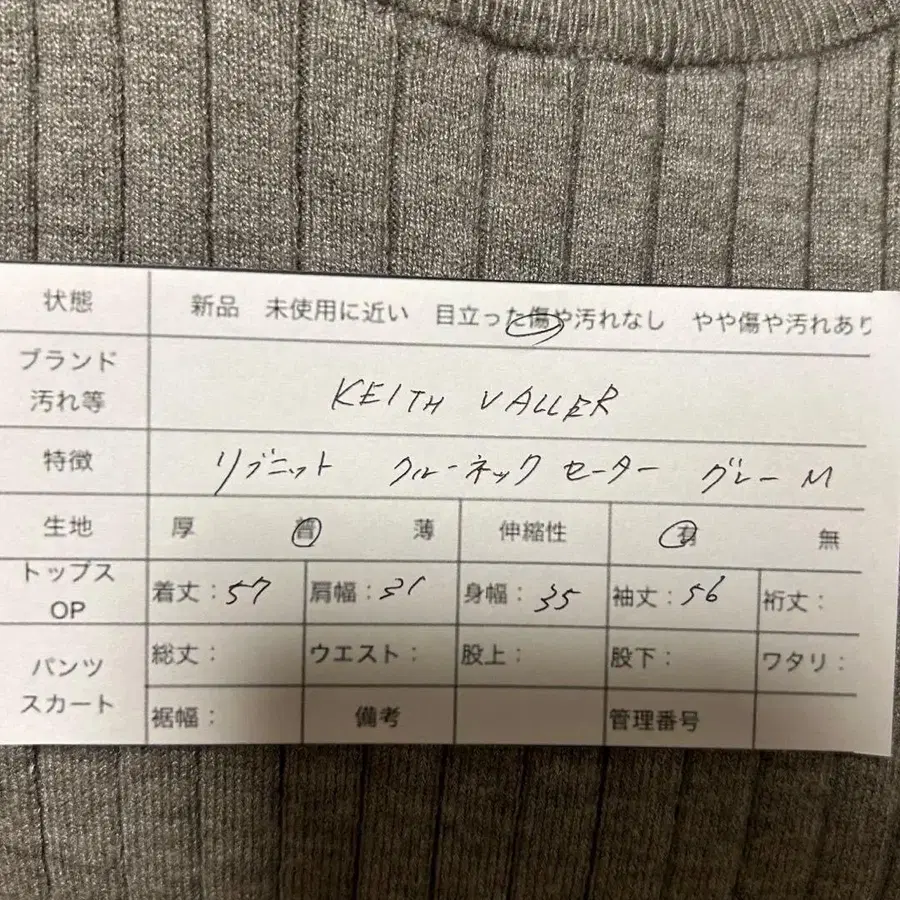 状態 新品 未使用に近い 目立った傷や汚れなし やや傷や汚れあり
ブランド
汚れ等 KEITH VALLER
特徴 リブニット クルーネック セーター グレー M
生地 厚 普 薄 伸縮性 有 無
トップス
OP 着丈:57 肩幅:31 身幅:35 袖丈:56 裄丈:
パンツ
スカート 総丈: ウエスト: 股上: 股下: ワタリ:
裾幅: 備考 管理番号